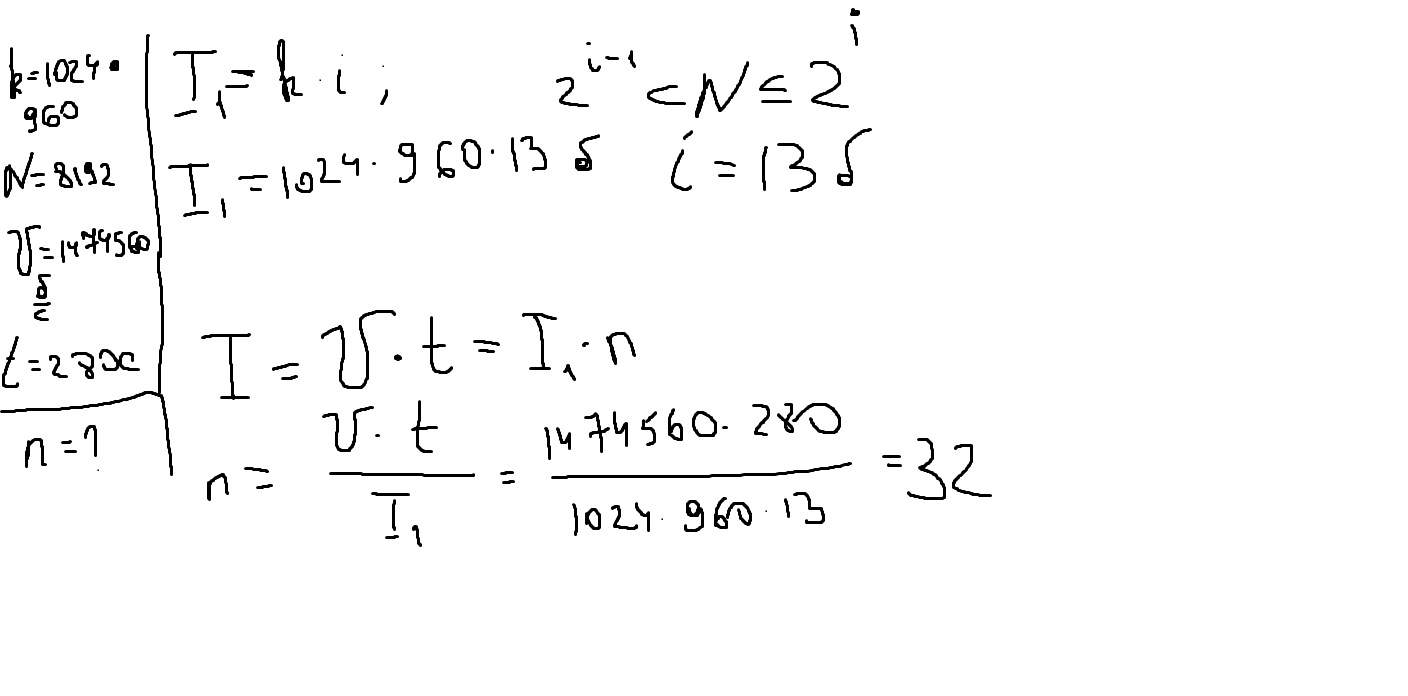 k=1024·
960
N=8192
V=1474560
б/с
t=280c
n=?
I₁=k·i; 2^(i-1)<N≤2^i
I₁=1024·960·13 б i=13 б
I=V·t=I₁·n
n=(V·t)/I₁=(1474560·280)/(1024·960·13)=32